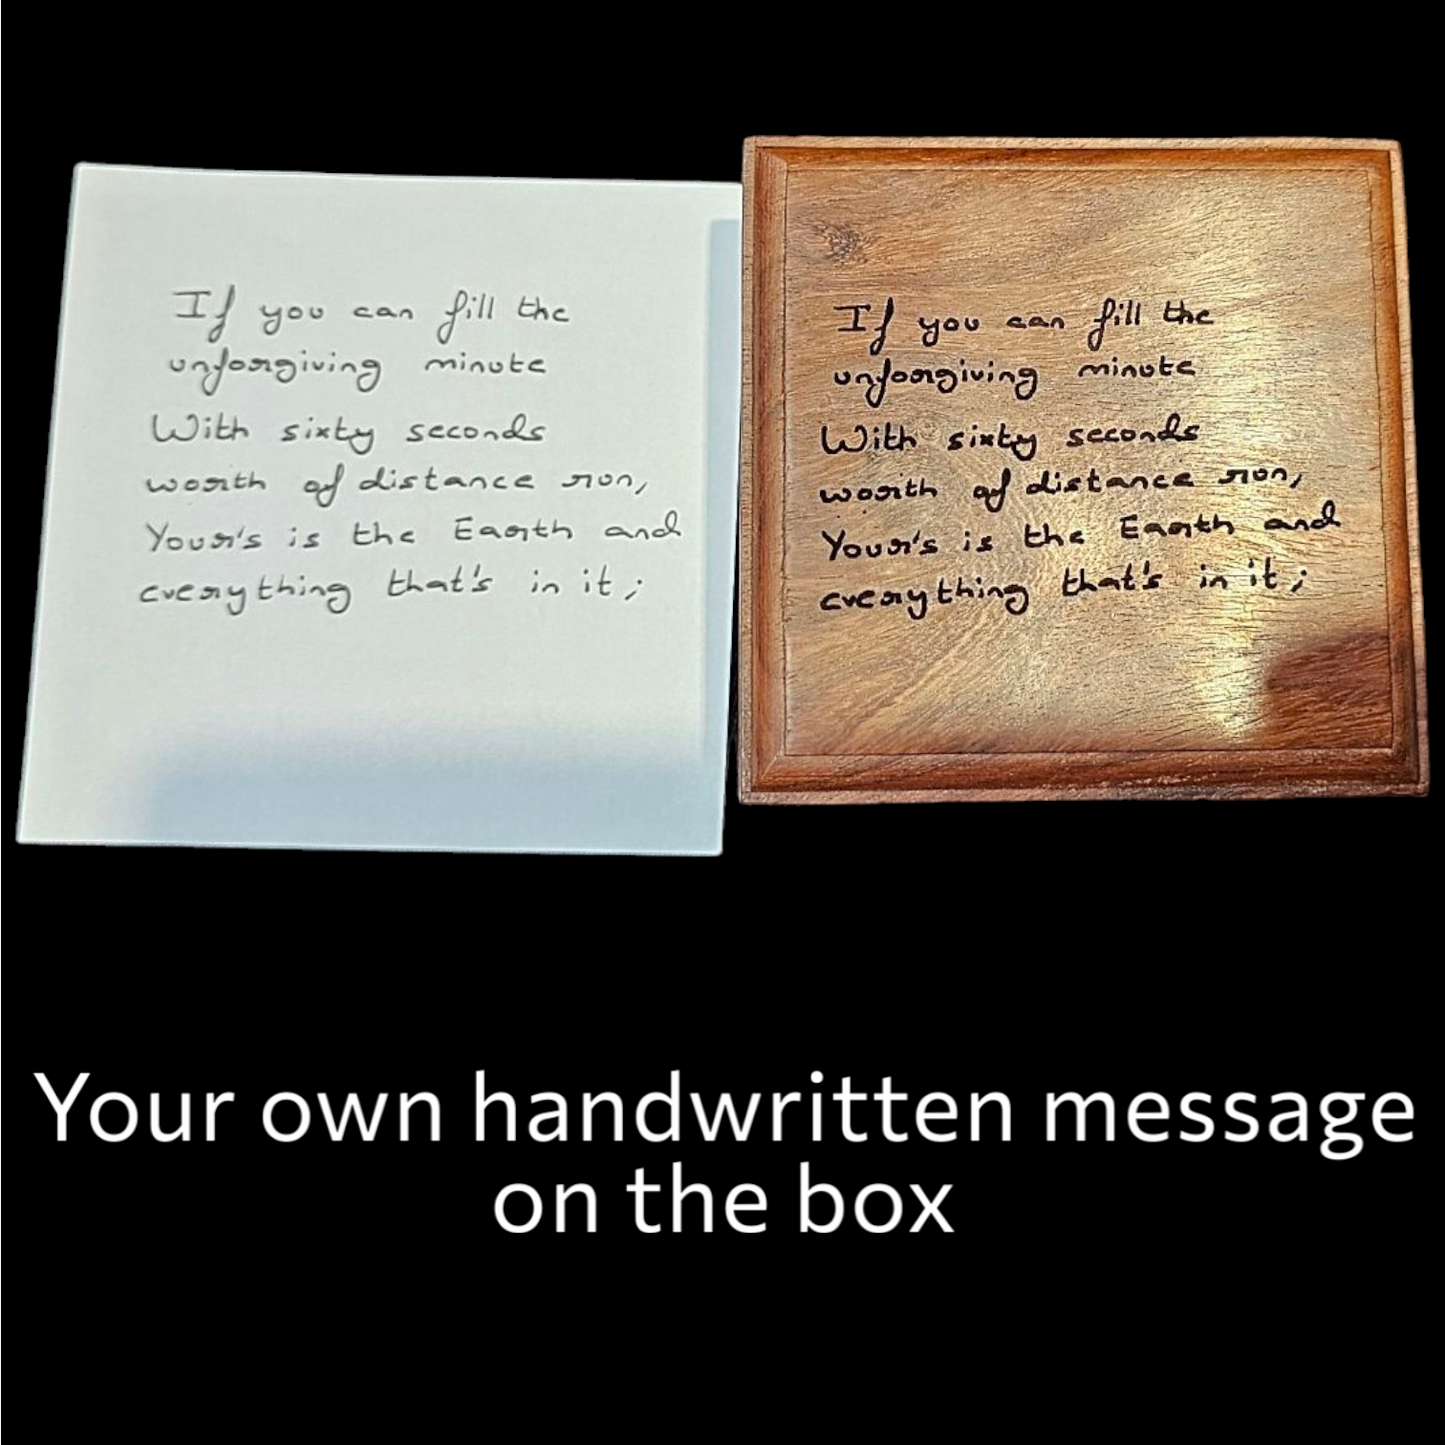 If you can fill the
unforgiving minute
With sixty seconds
worth of distance run,
Your's is the Earth and
everything that's in it;
If you can fill the
unforgiving minute
With sixty seconds
worth of distance run,
Your's is the Earth and
everything that's in it;
Your own handwritten message
on the box